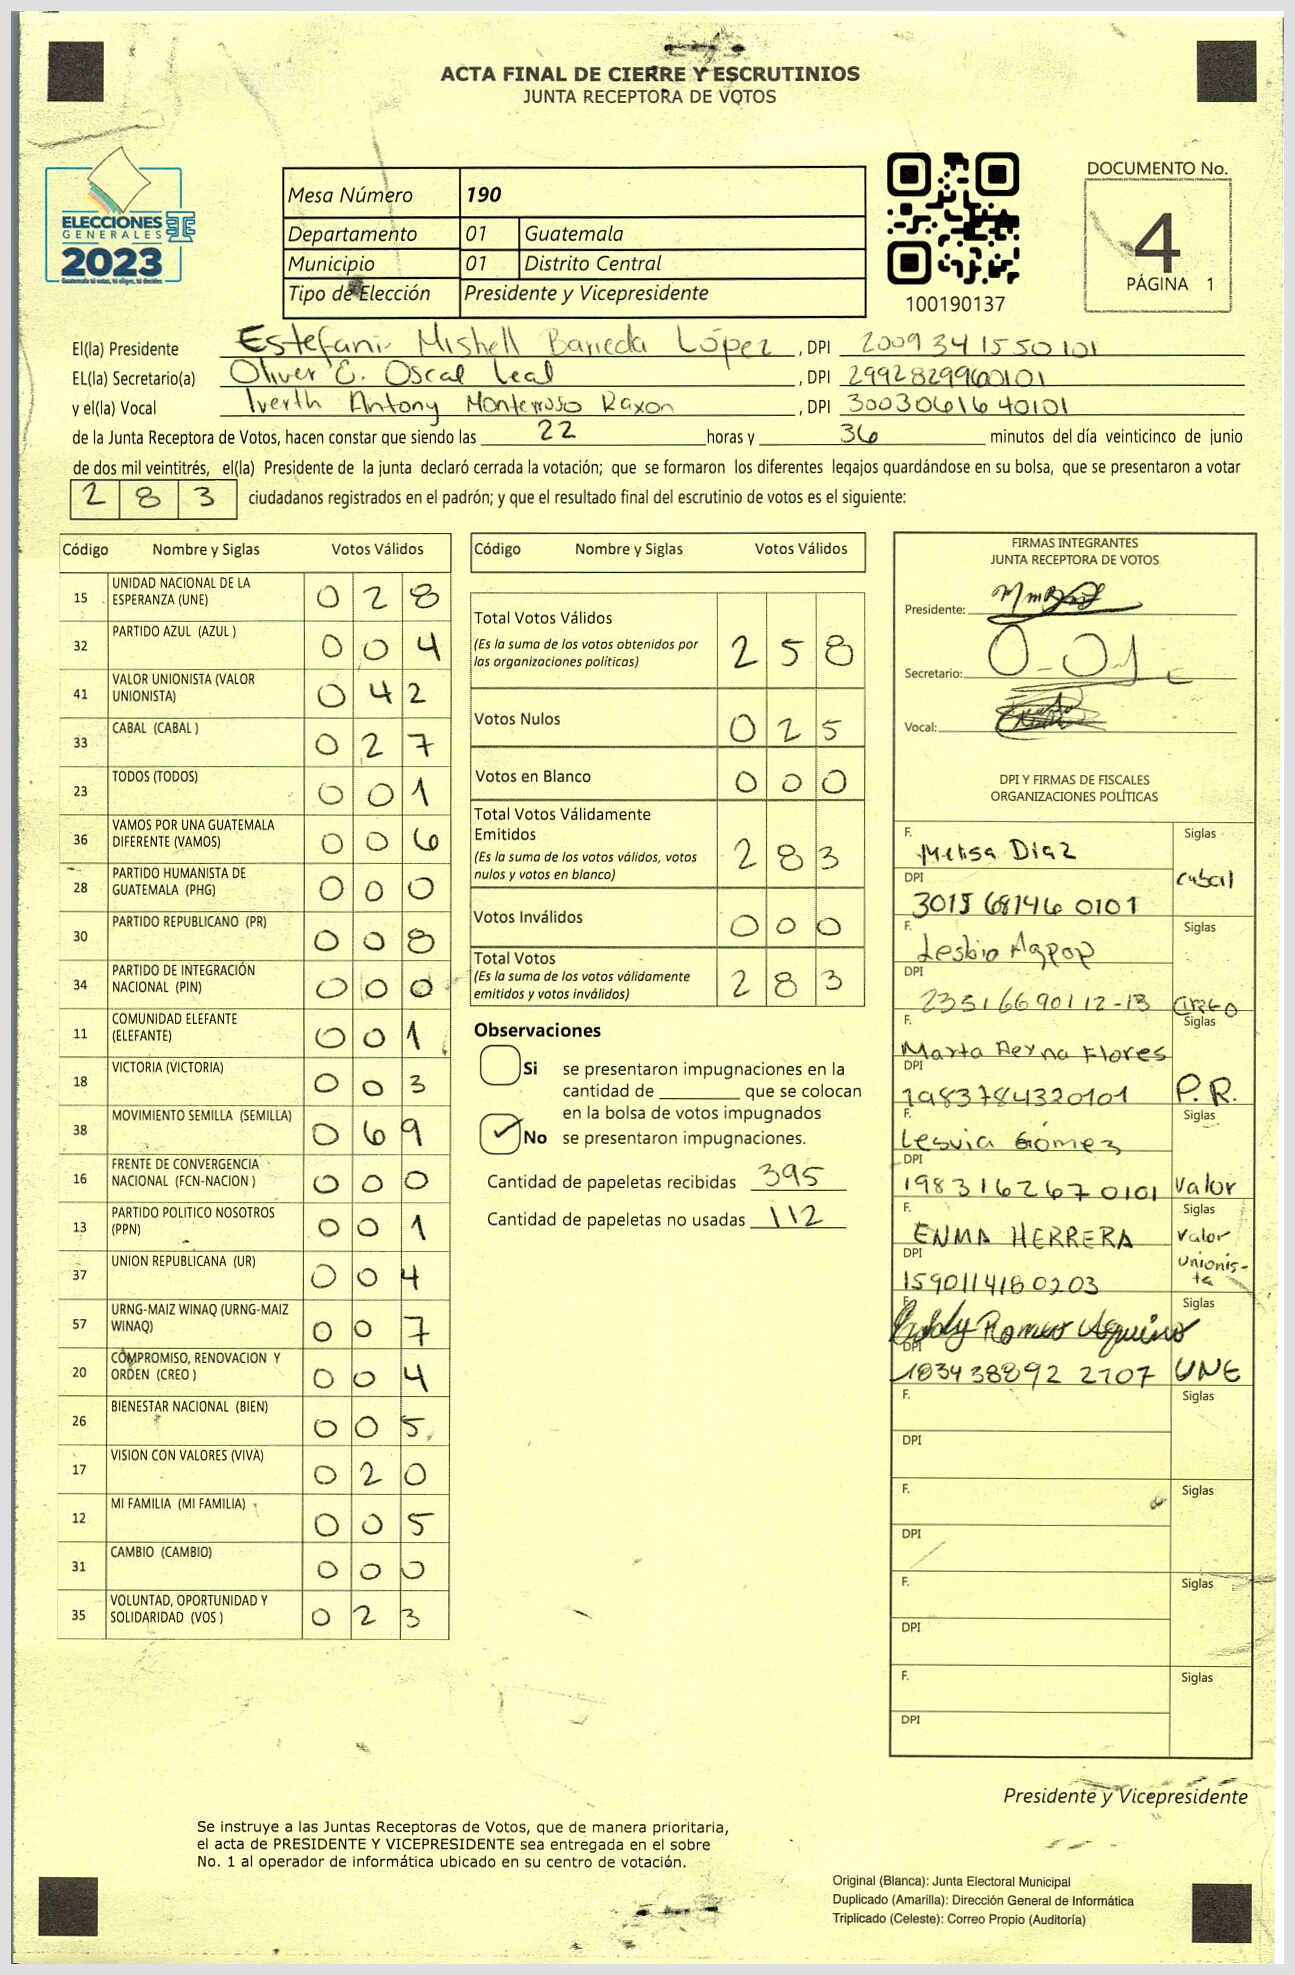 ACTA FINAL DE CIERRE Y ESCRUTINIOS
JUNTA RECEPTORA DE VOTOS
ELECCIONES
GENERALES
2023
Mesa Número 190
Departamento 01 Guatemala
Municipio 01 Distrito Central
Tipo de Elección Presidente y Vicepresidente
100190137
DOCUMENTO No.
4
PÁGINA 1
El(la) Presidente Estefani Mishell Barreda López, DPI 2009341550101
EL(la) Secretario(a) Oliver E. Oscal Leal, DPI 2992829960101
y el(la) Vocal Iverth Antony Monterroso Raxon, DPI 3003061640101
de la Junta Receptora de Votos, hacen constar que siendo las 22 horas y 36 minutos del día veinticinco de junio
de dos mil veintitrés, el(la) Presidente de la junta declaró cerrada la votación; que se formaron los diferentes legajos quardándose en su bolsa, que se presentaron a votar
283 ciudadanos registrados en el padrón; y que el resultado final del escrutinio de votos es el siguiente:
Código Nombre y Siglas Votos Válidos
15 UNIDAD NACIONAL DE LA ESPERANZA (UNE) 028
32 PARTIDO AZUL (AZUL ) 004
41 VALOR UNIONISTA (VALOR UNIONISTA) 042
33 CABAL (CABAL ) 027
23 TODOS (TODOS) 001
36 VAMOS POR UNA GUATEMALA DIFERENTE (VAMOS) 006
28 PARTIDO HUMANISTA DE GUATEMALA (PHG) 000
30 PARTIDO REPUBLICANO (PR) 008
34 PARTIDO DE INTEGRACIÓN NACIONAL (PIN) 000
11 COMUNIDAD ELEFANTE (ELEFANTE) 001
18 VICTORIA (VICTORIA) 003
38 MOVIMIENTO SEMILLA (SEMILLA) 069
16 FRENTE DE CONVERGENCIA NACIONAL (FCN-NACION ) 000
13 PARTIDO POLITICO NOSOTROS (PPN) 001
37 UNION REPUBLICANA (UR) 004
57 URNG-MAIZ WINAQ (URNG-MAIZ WINAQ) 007
20 COMPROMISO, RENOVACION Y ORDEN (CREO ) 004
26 BIENESTAR NACIONAL (BIEN) 005
17 VISION CON VALORES (VIVA) 020
12 MI FAMILIA (MI FAMILIA) 005
31 CAMBIO (CAMBIO) 000
35 VOLUNTAD, OPORTUNIDAD Y SOLIDARIDAD (VOS ) 023
Código Nombre y Siglas Votos Válidos
Total Votos Válidos 258
(Es la suma de los votos obtenidos por
las organizaciones políticas)
Votos Nulos 025
Votos en Blanco 000
Total Votos Válidamente
Emitidos 283
(Es la suma de los votos válidos, votos
nulos y votos en blanco)
Votos Inválidos 000
Total Votos 283
(Es la suma de los votos válidamente
emitidos y votos inválidos)
Observaciones
Si se presentaron impugnaciones en la
cantidad de ________ que se colocan
en la bolsa de votos impugnados
No se presentaron impugnaciones.
Cantidad de papeletas recibidas 395
Cantidad de papeletas no usadas 112
FIRMAS INTEGRANTES
JUNTA RECEPTORA DE VOTOS
Presidente:
Secretario:
Vocal:
DPI Y FIRMAS DE FISCALES
ORGANIZACIONES POLÍTICAS
F. Melisa Diaz Siglas cabal
DPI 3015681460101
F. Lesbia Siglas
DPI
F. Marta Reyna Flores Siglas P.R.
DPI 1983784320101
F. Lesvia Gómez Siglas Valor
DPI 1983162670101
F. ENMA HERRERA Siglas Valor Unionis-
ta
DPI 1590114180203
F. Romeo Aquino Siglas UNE
DPI 1834388922107
F. Siglas
DPI
F. Siglas
DPI
F. Siglas
DPI
F. Siglas
DPI
Presidente y Vicepresidente
Se instruye a las Juntas Receptoras de Votos, que de manera prioritaria,
el acta de PRESIDENTE Y VICEPRESIDENTE sea entregada en el sobre
No. 1 al operador de informática ubicado en su centro de votación.
Original (Blanca): Junta Electoral Municipal
Duplicado (Amarilla): Dirección General de Informática
Triplicado (Celeste): Correo Propio (Auditoría)